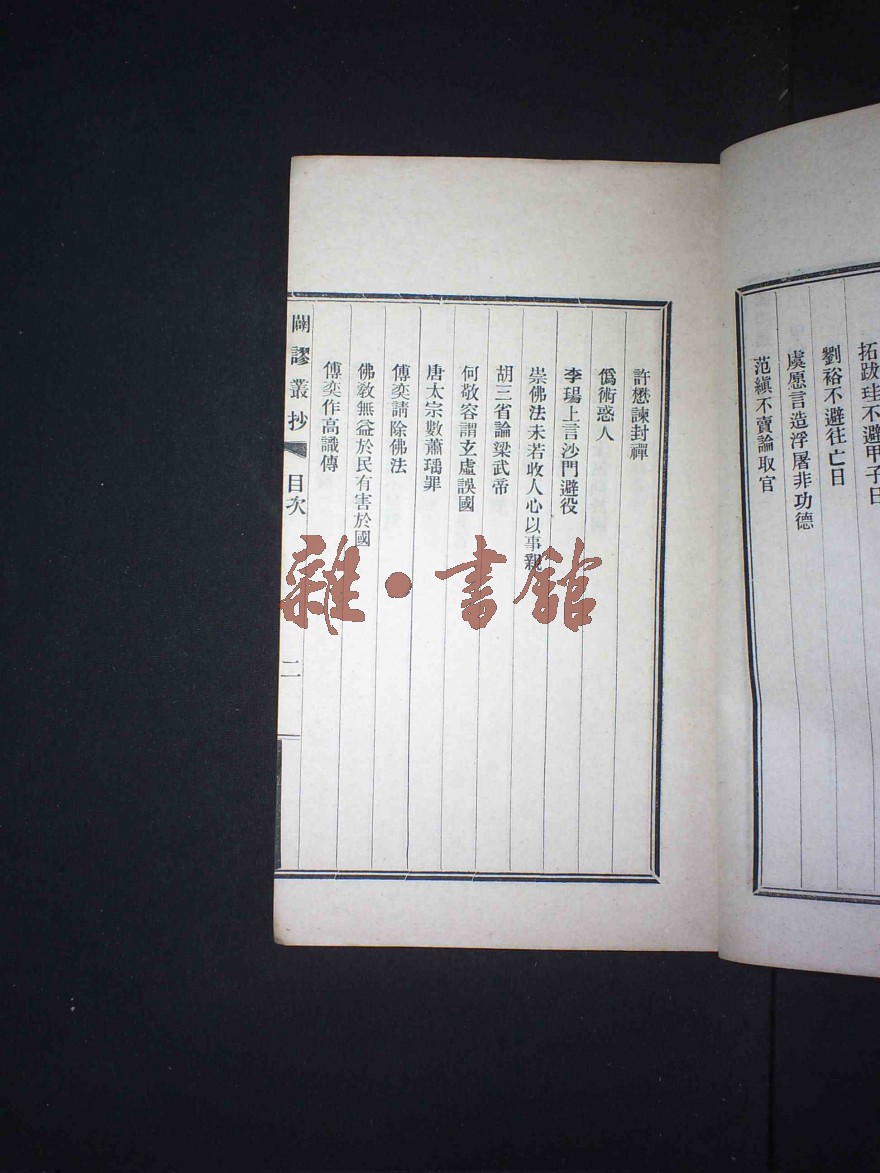 拓跋珪不避甲子日
劉裕不避往亡日
虞愿言造浮屠非功德
范縝不賣論取官
許懋諫封禪
僞術惑人
李瑒上言沙門避役
崇佛法未若收人心以事親
胡三省論梁武帝
何敬容謂玄虛誤國
唐太宗數蕭瑀罪
傅奕請除佛法
佛敎無益於民有害於國
傅奕作高識傳
闢謬叢抄
目次
二
雜·書館